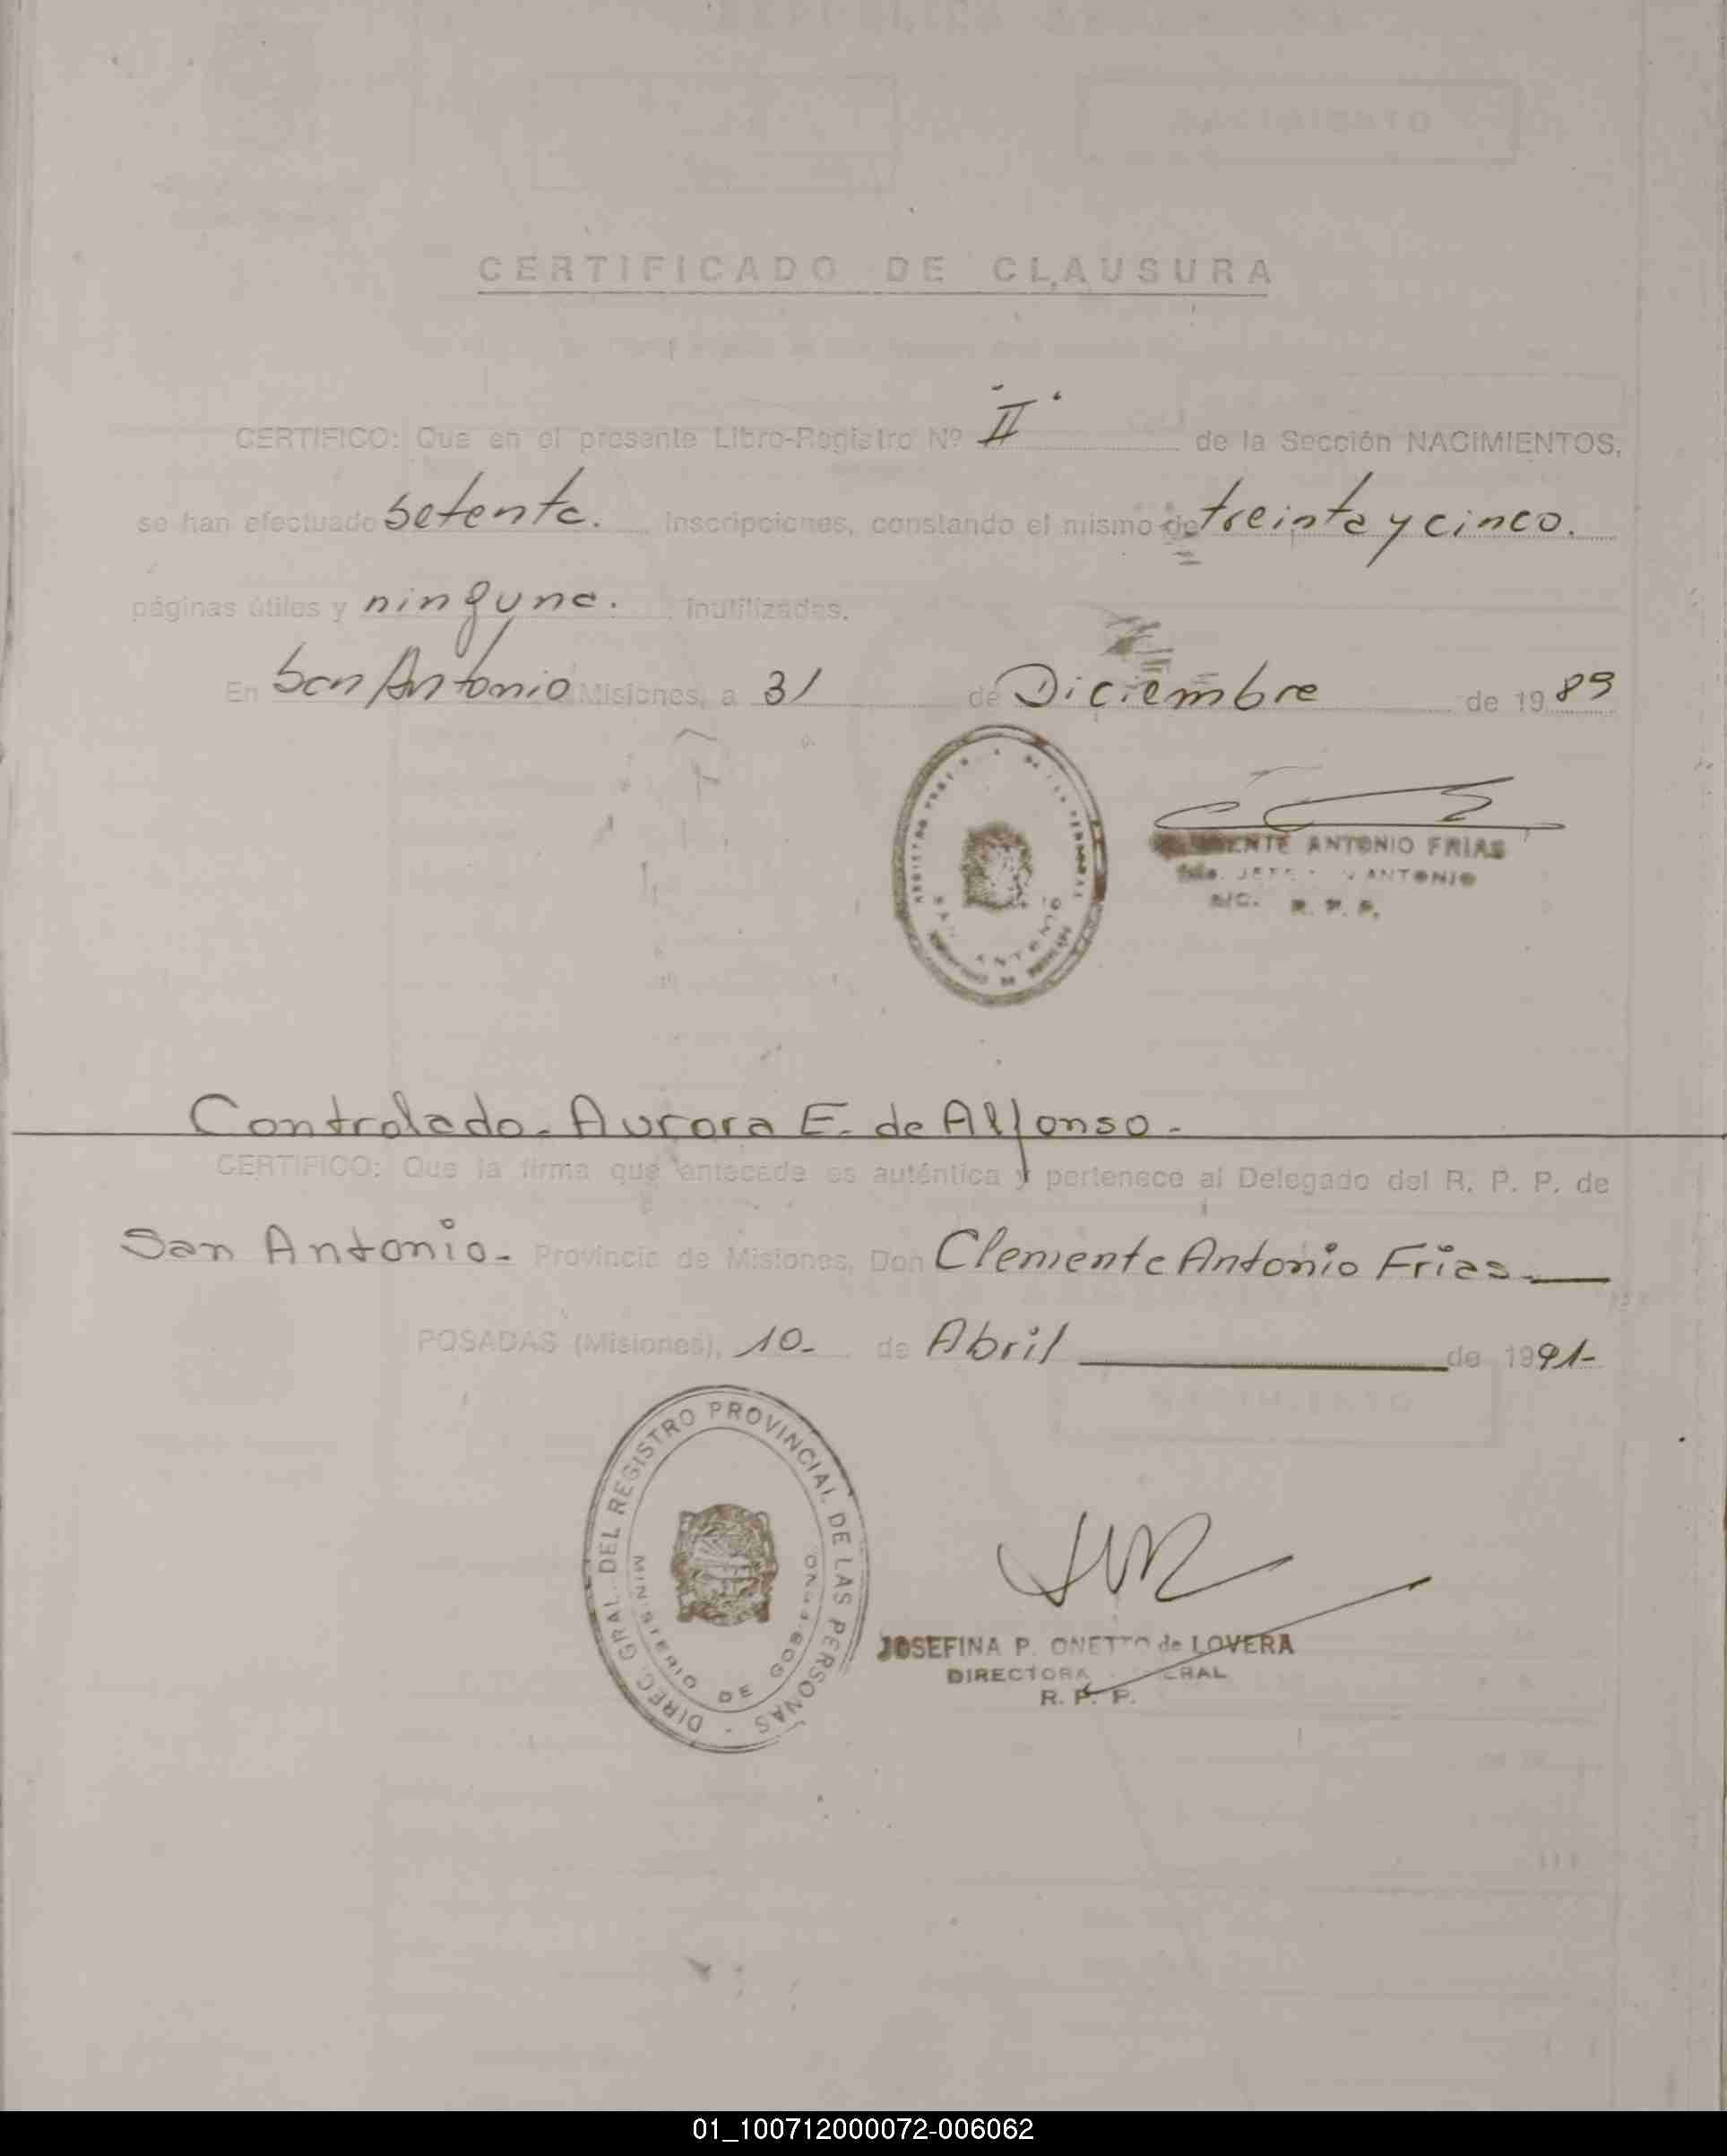 CERTIFICADO DE CLAUSURA
CERTIFICO: Que en el presente Libro-Registro Nº II de la Sección NACIMIENTOS,
se han efectuado Setenta. inscripciones, constando el mismo de treinta y cinco.
páginas útiles y ninguna. inutilizadas.
En San Antonio Misiones, a 31 de Diciembre de 1989
SAN ANTONIO
ANTONIO FRIAS
ANTONIO
A/C. R. P. P.
Controlado. Aurora E. de Alfonso.-
CERTIFICO: Que la firma que antecede es auténtica y pertenece al Delegado del R. P. P. de
San Antonio.- Provincia de Misiones, Don Clemente Antonio Frias.-
POSADAS (Misiones), 10.- de Abril de 1991-
DIREC. GRAL. DEL REGISTRO PROVINCIAL DE LAS PERSONAS -
MINISTERIO DE GOBIERNO
JOSEFINA P. ONETTO de LOVERA
DIRECTORA GENERAL
R. P. P.
01_100712000072-006062